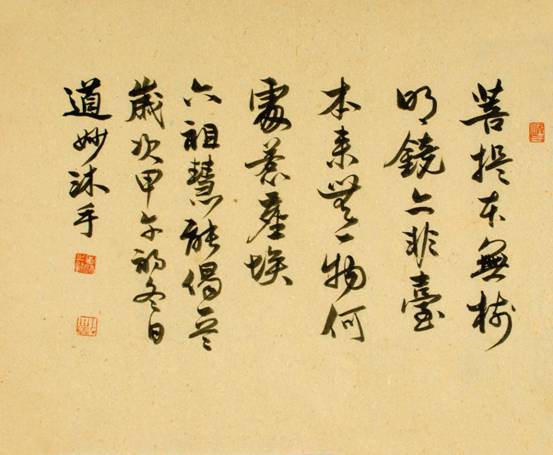 菩提本無樹
明鏡亦非臺
本來無一物何
處惹塵埃
六祖慧能偈
歲次甲午初冬日
道妙沐手